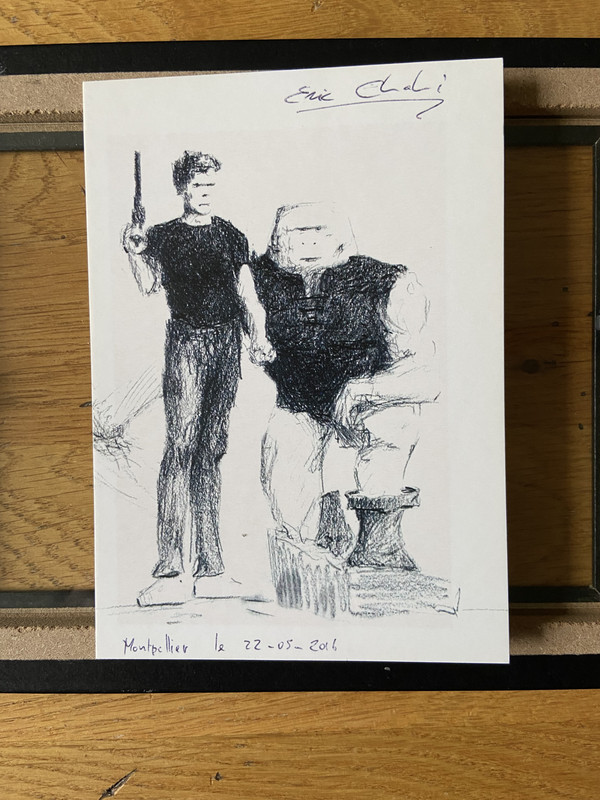 Eric Chahi
Montpellier le 22-05-2014